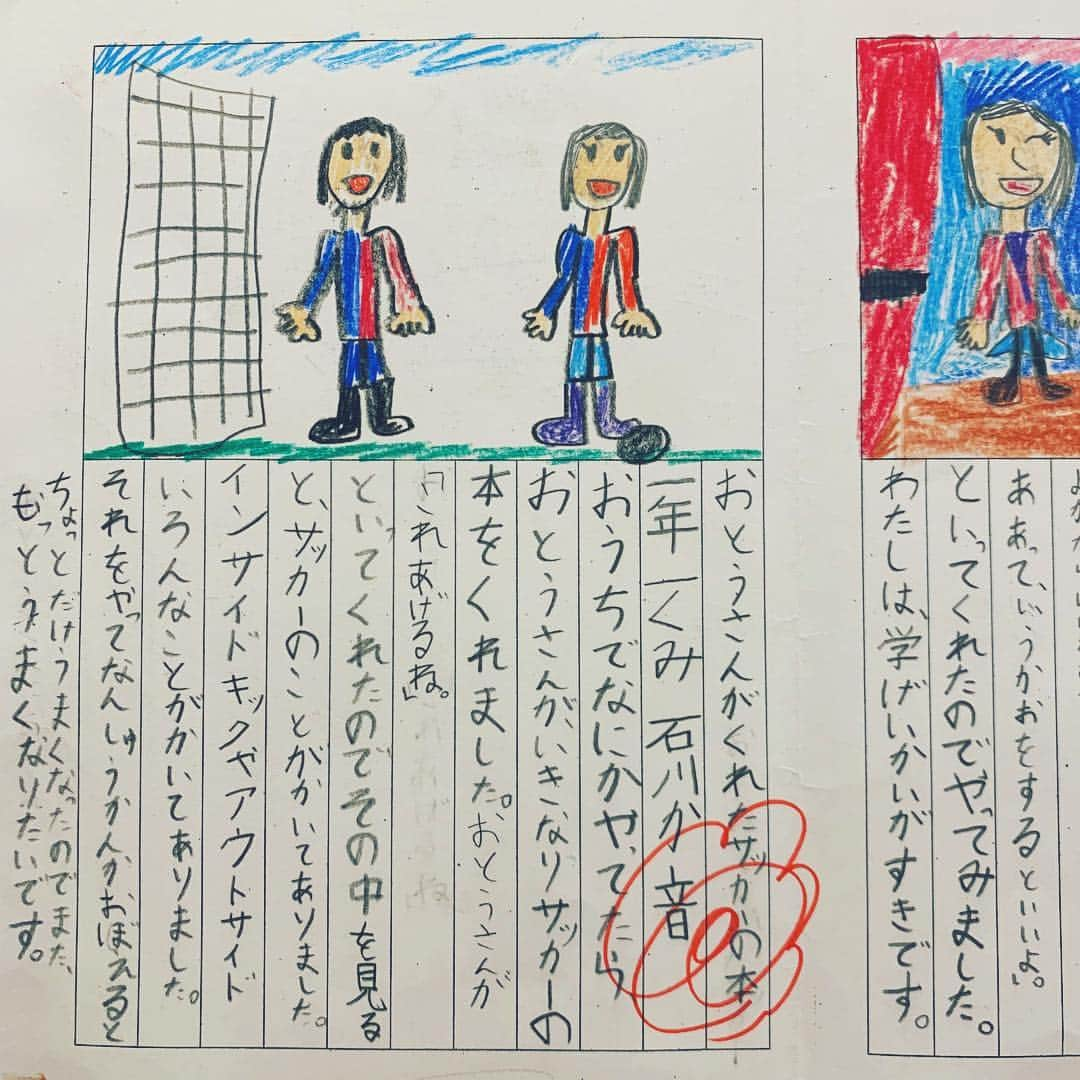 ああって、いうかおをするといいよ」。
といってくれたのでやってみました。
わたしは、学げいかいがすきです。
おとうさんがくれたサッカーの本
一年一くみ 石川か音
おうちでなにかやってたら
おとうさんが、いきなりサッカーの
本をくれました。おとうさんが
「これあげるね。」
といってくれたのでその中を見る
と、サッカーのことがかいてありました。
インサイドキックやアウトサイド
いろんなことがかいてありました。
それをやってなんしゅうかんかおぼえると
ちょっとだけうまくなったのでまた、
もっとうまくなりたいです。